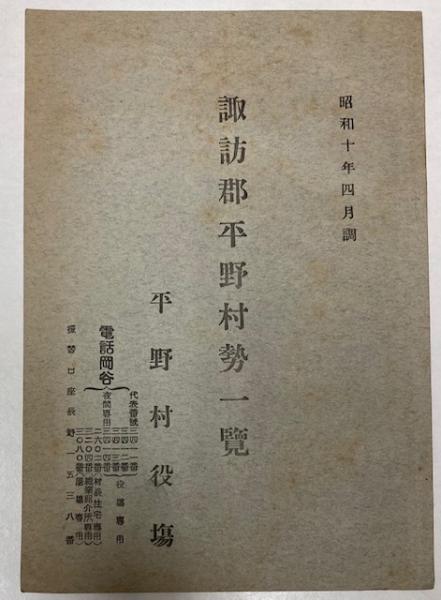 昭和十年四月調
諏訪郡平野村勢一覽
平野村役塲
電話岡谷
代表番號三四一一番
三四一二番
三四一三番
(役塲專用)
夜間專用三四一四番
二六〇二番(村長住宅專用)
三二〇四番(職業紹介所專用)
三〇八〇番
振替口座長野一五三八番